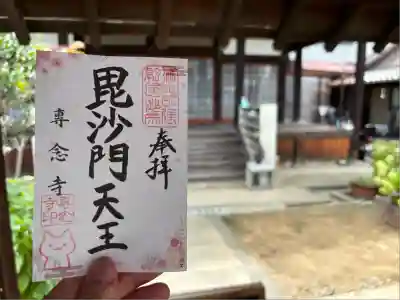 奉拝
毘沙門天王
専念寺